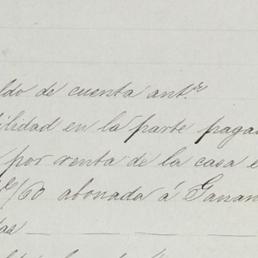 ldo de cuenta ant.r
ilidad en la parte paga
por venta de la casa e
/60 abonada á Ganan
das